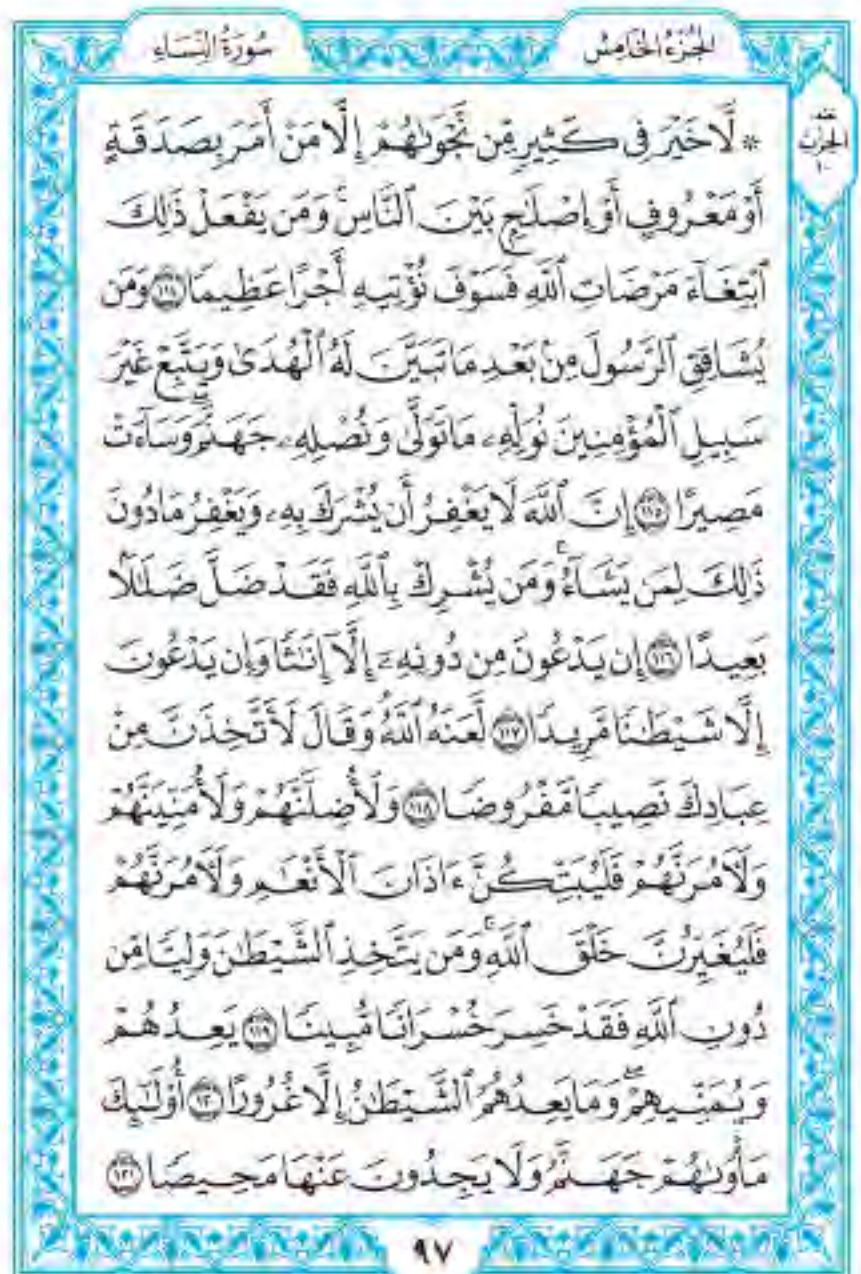 الجزء الخامس
سورة النساء
الحزب
١٠
۞ لَّا خَيْرَ فِى كَثِيرٍ مِّن نَّجْوَىٰهُمْ إِلَّا مَنْ أَمَرَ بِصَدَقَةٍ
أَوْ مَعْرُوفٍ أَوْ إِصْلَٰحٍۭ بَيْنَ ٱلنَّاسِۚ وَمَن يَفْعَلْ ذَٰلِكَ
ٱبْتِغَآءَ مَرْضَاتِ ٱللَّهِ فَسَوْفَ نُؤْتِيهِ أَجْرًا عَظِيمًا ١١٤ وَمَن
يُشَاقِقِ ٱلرَّسُولَ مِنۢ بَعْدِ مَا تَبَيَّنَ لَهُ ٱلْهُدَىٰ وَيَتَّبِعْ غَيْرَ
سَبِيلِ ٱلْمُؤْمِنِينَ نُوَلِّهِۦ مَا تَوَلَّىٰ وَنُصْلِهِۦ جَهَنَّمَۖ وَسَآءَتْ
مَصِيرًا ١١٥ إِنَّ ٱللَّهَ لَا يَغْفِرُ أَن يُشْرَكَ بِهِۦ وَيَغْفِرُ مَا دُونَ
ذَٰلِكَ لِمَن يَشَآءُۚ وَمَن يُشْرِكْ بِٱللَّهِ فَقَدْ ضَلَّ ضَلَٰلًۢا
بَعِيدًا ١١٦ إِن يَدْعُونَ مِن دُونِهِۦٓ إِلَّآ إِنَٰثًا وَإِن يَدْعُونَ
إِلَّا شَيْطَٰنًا مَّرِيدًا ١١٧ لَّعَنَهُ ٱللَّهُۘ وَقَالَ لَأَتَّخِذَنَّ مِنْ
عِبَادِكَ نَصِيبًا مَّفْرُوضًا ١١٨ وَلَأُضِلَّنَّهُمْ وَلَأُمَنِّيَنَّهُمْ
وَلَءَامُرَنَّهُمْ فَلَيُبَتِّكُنَّ ءَاذَانَ ٱلْأَنْعَٰمِ وَلَءَامُرَنَّهُمْ
فَلَيُغَيِّرُنَّ خَلْقَ ٱللَّهِۚ وَمَن يَتَّخِذِ ٱلشَّيْطَٰنَ وَلِيًّا مِّن
دُونِ ٱللَّهِ فَقَدْ خَسِرَ خُسْرَانًا مُّبِينًا ١١٩ يَعِدُهُمْ
وَيُمَنِّيهِمْۖ وَمَا يَعِدُهُمُ ٱلشَّيْطَٰنُ إِلَّا غُرُورًا ١٢٠ أُو۟لَٰٓئِكَ
مَأْوَىٰهُمْ جَهَنَّمُ وَلَا يَجِدُونَ عَنْهَا مَحِيصًا ١٢١
٩٧